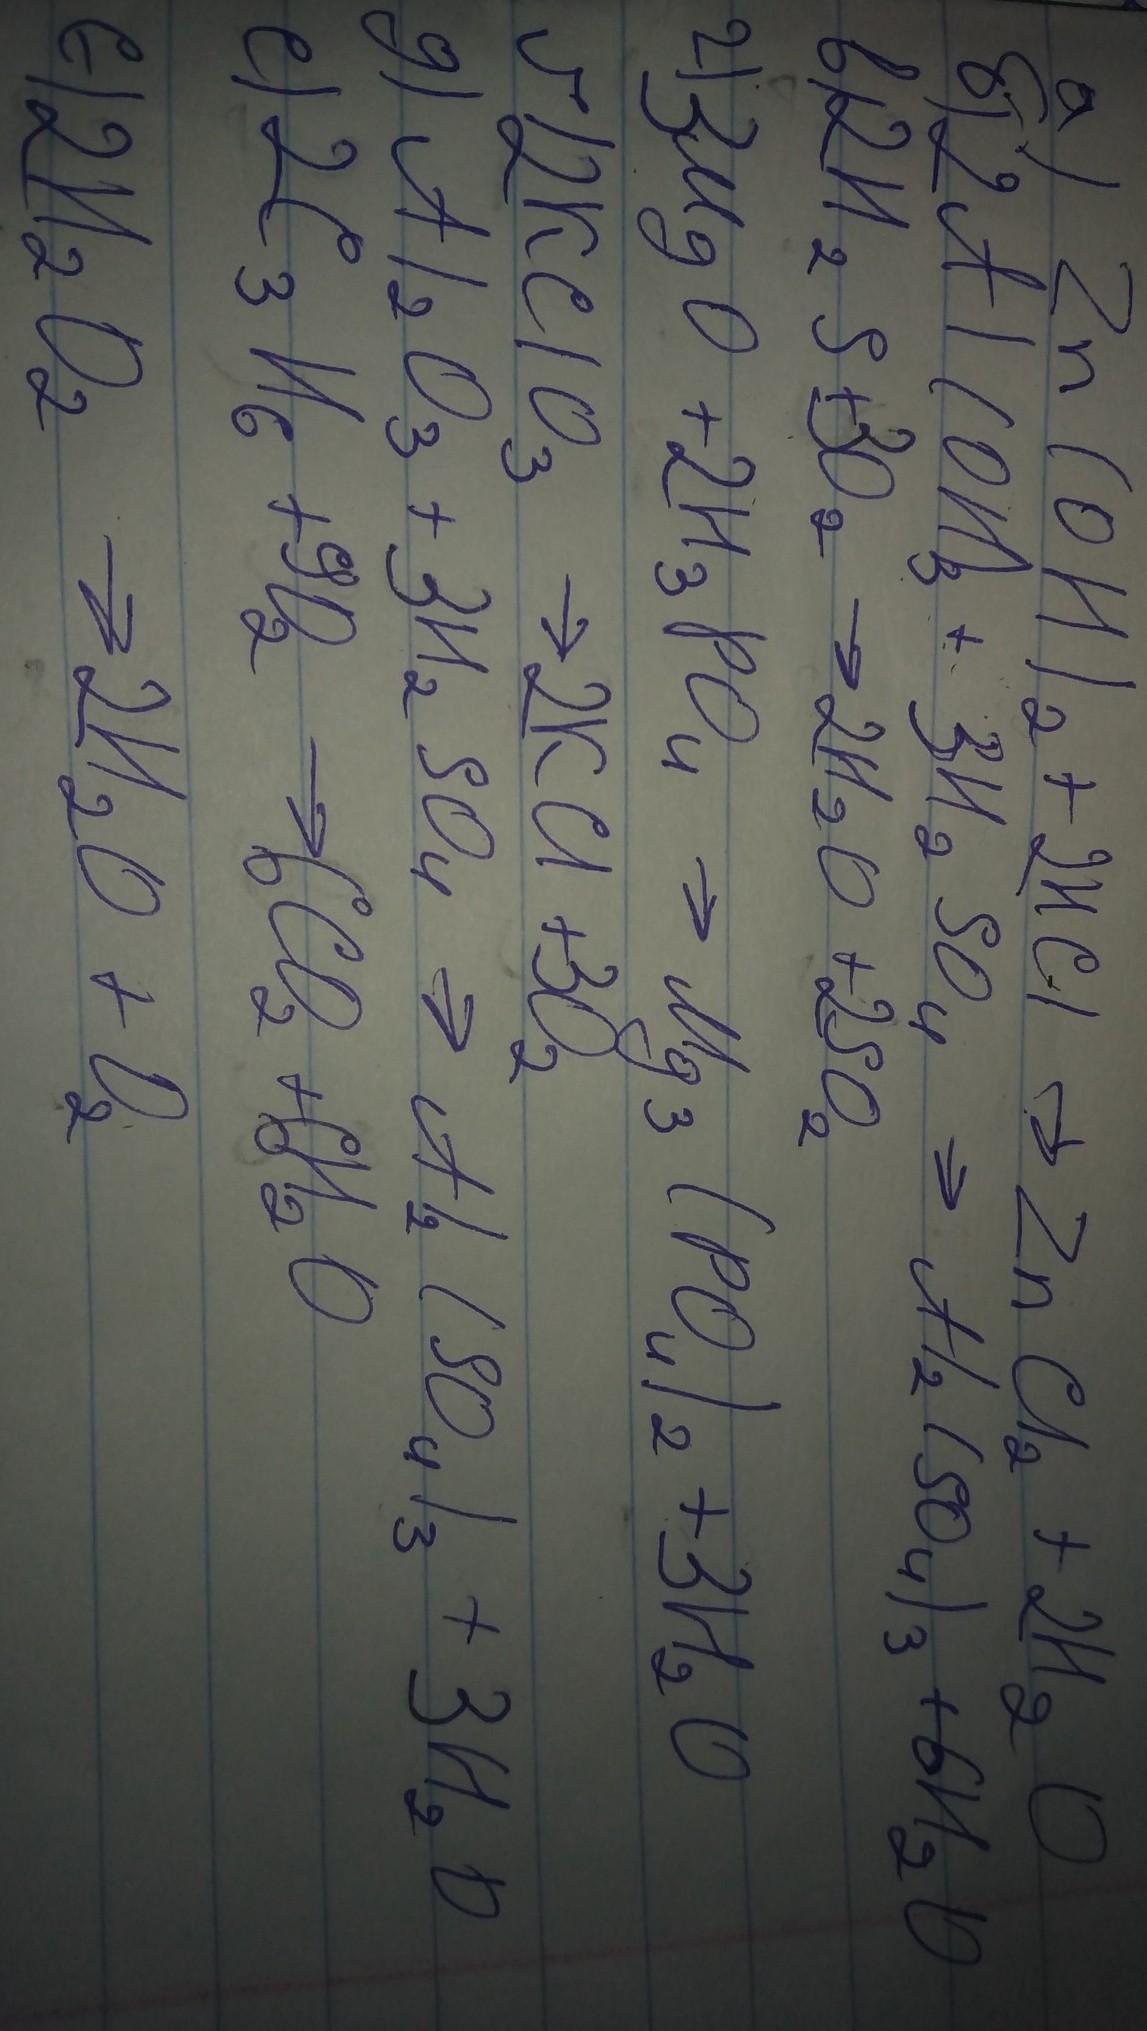 а) Zn(OH)₂ + 2HCl → ZnCl₂ + 2H₂O
б) 2Al(OH)₃ + 3H₂SO₄ → Al₂(SO₄)₃ + 6H₂O
в) 2H₂S + 3O₂ → 2H₂O + 2SO₂
г) 3MgO + 2H₃PO₄ → Mg₃(PO₄)₂ + 3H₂O
г) 2KClO₃ → 2KCl + 3O₂
д) Al₂O₃ + 3H₂SO₄ → Al₂(SO₄)₃ + 3H₂O
е) 2C₃H₆ + 9O₂ → 6CO₂ + 6H₂O
е) 2H₂O₂ → 2H₂O + O₂